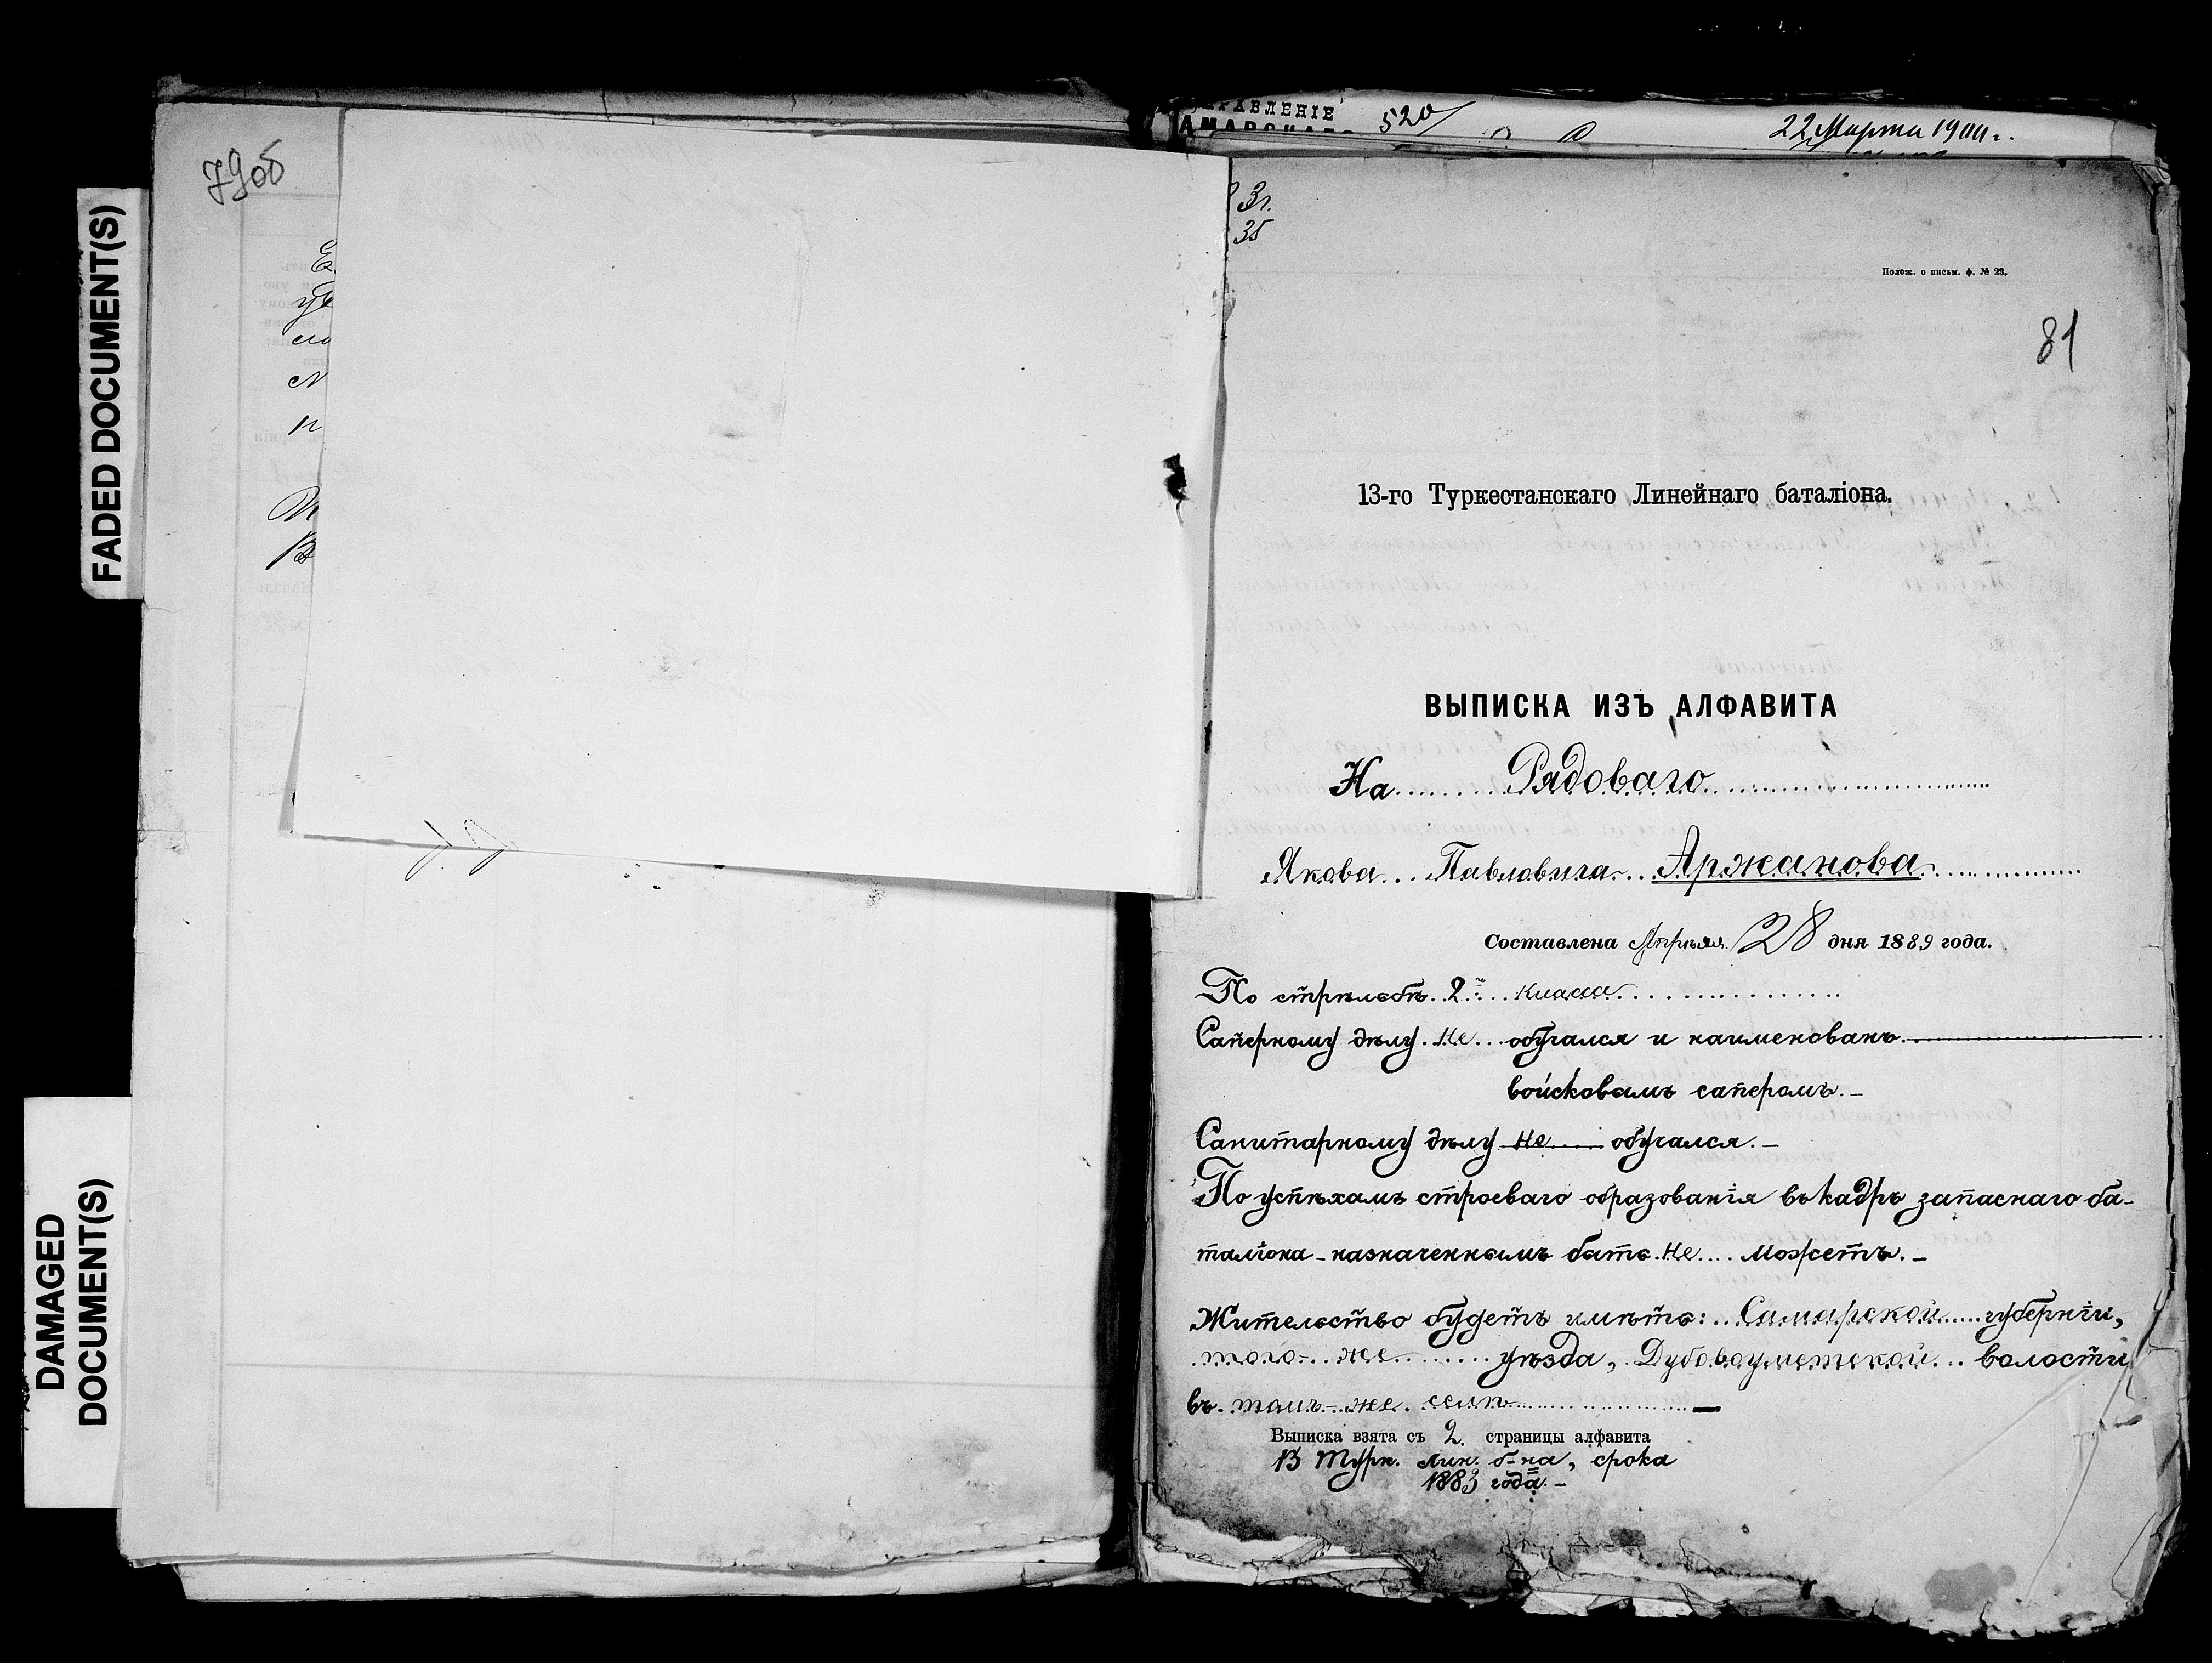 FADED DOCUMENT(S)
DAMAGED
DOCUMENT(S)
79об
520
22 Марта 1900 г.
Зг.
35
Полож. о письм. ф. № 23.
81
13-го Туркестанскаго Линейнаго баталіона.
ВЫПИСКА ИЗЪ АЛФАВИТА
На Рядоваго
Якова Павловича Аржанова
Составлена Апрѣля 28 дня 1889 года.
По стрѣльбѣ 2го класса
Саперному дѣлу не обучался и наименованъ
войсковымъ саперомъ.
Санитарному дѣлу не обучался.
По успѣхамъ строеваго образованія въ кадръ запаснаго ба-
таліона назначеннымъ быть не можетъ.
Жительство будетъ имѣть: Самарской губерніи,
того-же уѣзда, Дубовоуметской волости
въ томъ-же селѣ
Выписка взята съ 2. страницы алфавита
13 Турк. Лин. б-на, срока
1883 года.